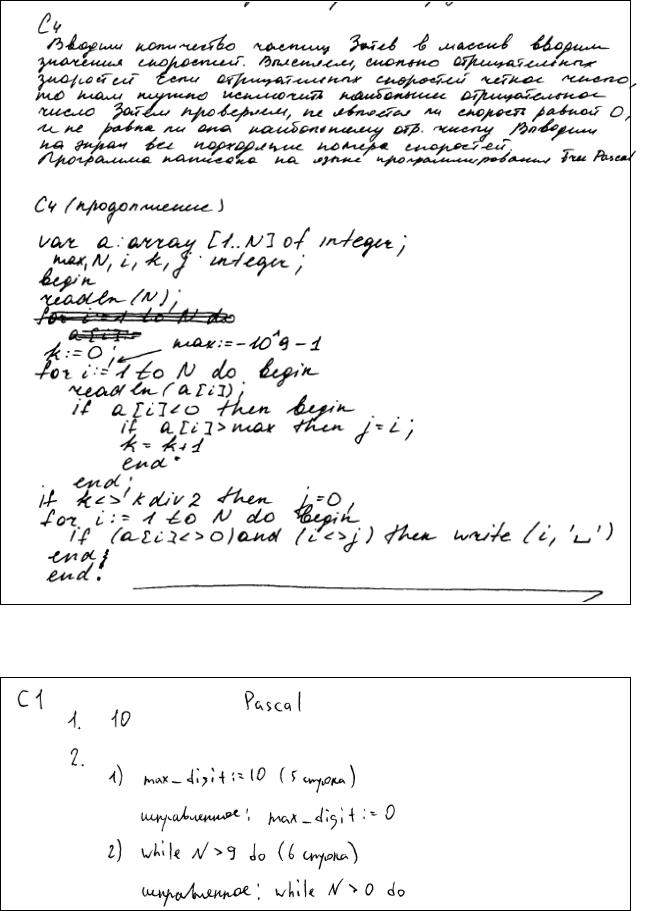 С4
Вводим количество частиц Затем в массив вводим
значения скоростей. Выясняем, сколько отрицательных
скоростей Если отрицательных скоростей четное число,
то нужно исключить наибольшее отрицательное
число Затем проверяем, не является ли скорость равной 0,
и не равна ли она наибольшему отр. числу Выводим
на экран все подходящие номера скоростей,
Программа написана на языке программирования Free Pascal
С4 (продолжение)
var a: array [1..N] of integer;
max, N, i, k, j: integer;
begin
readln (N);
for i:=1 to N do
a[i]:=
k:=0; max:=-10^9-1
for i:=1 to N do begin
readln (a[i]);
if a[i]<0 then begin
if a[i]>max then j=i;
k= k+1
end.
end;
if k<>k div 2 then j=0,
for i:=1 to N do begin
if (a[i]<>0) and (i<>j) then write (i, '␣')
end;
end.
C1 Pascal
1. 10
2.
1) max_digit:=10 (5 строка)
исправленное: max_digit:=0
2) while N>9 do (6 строка)
исправленное: while N>0 do